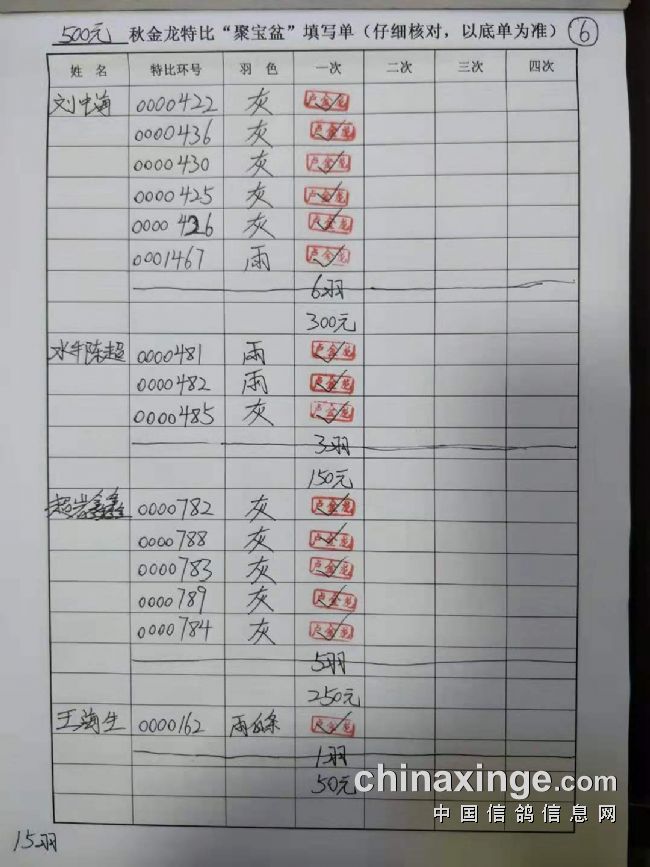 500元 秋金龙特比“聚宝盆”填写单（仔细核对，以底单为准） 6
姓 名 特比环号 羽 色 一次 二次 三次 四次
刘中海 0000422 灰 卢金龙
0000436 灰 卢金龙
0000430 灰 卢金龙
0000425 灰 卢金龙
0000426 灰 卢金龙
0001467 雨 卢金龙
6羽
300元
水牛陈超 0000481 雨 卢金龙
0000482 雨 卢金龙
0000485 灰 卢金龙
3羽
150元
超岩鑫 0000782 灰 卢金龙
0000788 灰 卢金龙
0000783 灰 卢金龙
0000789 灰 卢金龙
0000784 灰 卢金龙
5羽
250元
王海生 0000162 雨 卢金龙
1羽
50元
chinaxinge.com
中国信鸽信息网
15羽